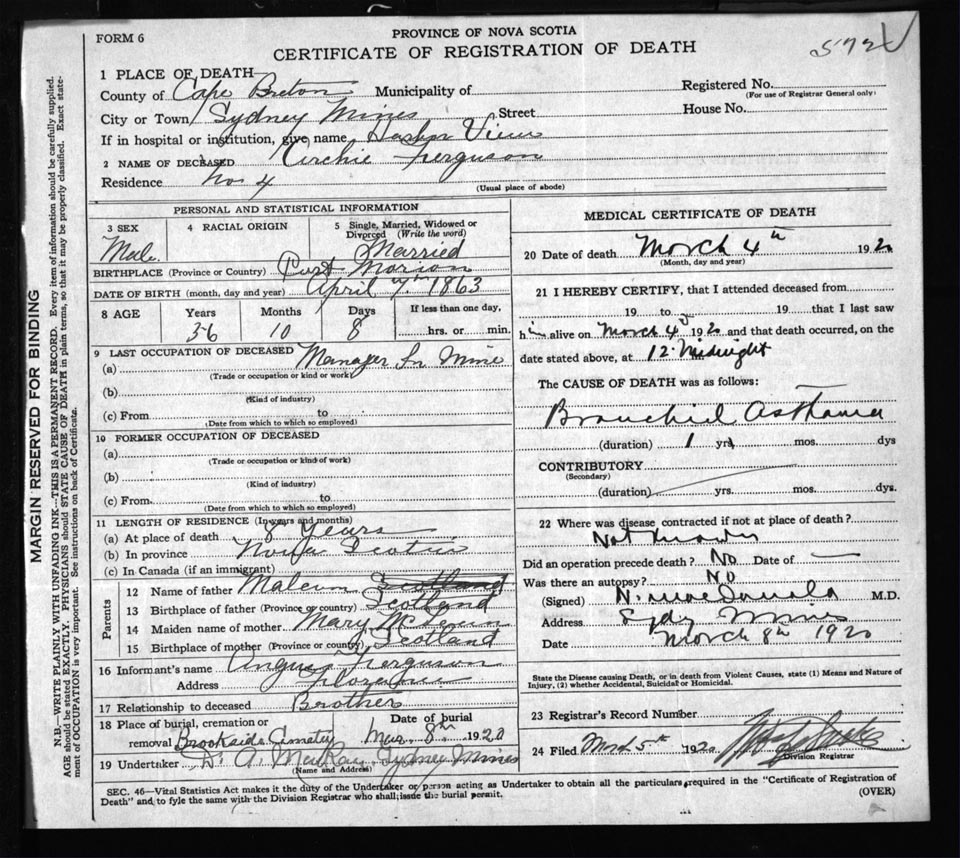 FORM 6
PROVINCE OF NOVA SCOTIA
CERTIFICATE OF REGISTRATION OF DEATH
572
1 PLACE OF DEATH
County of Cape Breton Municipality of
Registered No.
(For use of Registrar General only)
City or Town Sydney Mines Street
House No.
If in hospital or institution, give name Harbor View
2 NAME OF DECEASED Archie Ferguson
Residence No 4
(Usual place of abode)
PERSONAL AND STATISTICAL INFORMATION
3 SEX
Male.
4 RACIAL ORIGIN
5 Single, Married, Widowed or Divorced (Write the word)
Married
BIRTHPLACE (Province or Country) Port Morien
DATE OF BIRTH (month, day and year) April 7th 1863
8 AGE Years Months Days If less than one day,
56 10 8 hrs. or min.
9 LAST OCCUPATION OF DECEASED
(a) Manager In Mine
(Trade or occupation or kind or work)
(b)
(Kind of industry)
(c) From to
(Date from which to which so employed)
10 FORMER OCCUPATION OF DECEASED
(a)
(Trade or occupation or kind of work)
(b)
(Kind of industry)
(c) From to
(Date from which to which so employed)
11 LENGTH OF RESIDENCE (In years and months)
(a) At place of death 8 years
(b) In province Nova Scotia
(c) In Canada (if an immigrant)
Parents
12 Name of father Malcum Scotland
13 Birthplace of father (Province or country) Scotland
14 Maiden name of mother Mary
15 Birthplace of mother (Province or country) Scotland
16 Informant's name Angus Ferguson
Address Florence
17 Relationship to deceased Brother
18 Place of burial, cremation or removal Brookside Cemetery
Date of burial
Mar. 8th 1920
19 Undertaker D. A. MacKay. Sydney Mines
(Name and Address)
MEDICAL CERTIFICATE OF DEATH
20 Date of death March 4th 1920
(Month, day and year)
21 I HEREBY CERTIFY, that I attended deceased from
19 to 19 that I last saw
him alive on March 4 1920 and that death occurred, on the
date stated above, at 12 Midnight
The CAUSE OF DEATH was as follows:
Bronchial Asthma
(duration) 1 yrs mos. dys
CONTRIBUTORY
(Secondary)
(duration) yrs. mos. dys.
22 Where was disease contracted if not at place of death?
Not known
Did an operation precede death? No Date of
Was there an autopsy? No
(Signed) N. MacDonald M.D.
Address Sydy Mines
Date March 8th 1920
State the Disease causing Death, or in death from Violent Causes, state (1) Means and Nature of
Injury, (2) whether Accidental, Suicidal or Homicidal.
23 Registrar's Record Number
24 Filed Mch 5th 1920
Division Registrar
SEC. 46—Vital Statistics Act makes it the duty of the Undertaker or person acting as Undertaker to obtain all the particulars required in the "Certificate of Registration of
Death" and to fyle the same with the Division Registrar who shall issue the burial permit.
(OVER)
MARGIN RESERVED FOR BINDING
N.B.—WRITE PLAINLY WITH UNFADING INK—THIS IS A PERMANENT RECORD. Every item of information should be carefully supplied.
AGE should be stated EXACTLY. PHYSICIANS should STATE CAUSE OF DEATH in plain terms, so that it may be properly classified. Exact state-
ment of OCCUPATION is very important. See instructions on back of Certificate.